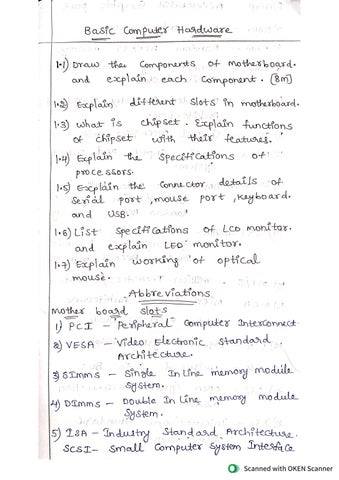 Basic Computer Hardware
1.1) Draw the Components of motherboard.
and explain each component. (8m)
1.2) Explain different slots in motherboard.
1.3) what is chipset. Explain functions
of chipset with their features.
1.4) Explain the specifications of
processors.
1.5) Explain the connector details of
serial port, mouse port, keyboard.
and USB.
1.6) List specifications of LCD monitor.
and explain LED monitor.
1.7) Explain working of optical
mouse.
Abbreviations
Mother board slots
1) PCI - Peripheral Computer Interconnect
2) VESA - Video Electronic Standard
Architecture.
3) SImms - Single In Line memory module
System.
4) DImms - Double In Line memory module
System.
5) ISA - Industry Standard Architecture.
SCSI - Small Computer System Interface
Scanned with OKEN Scanner